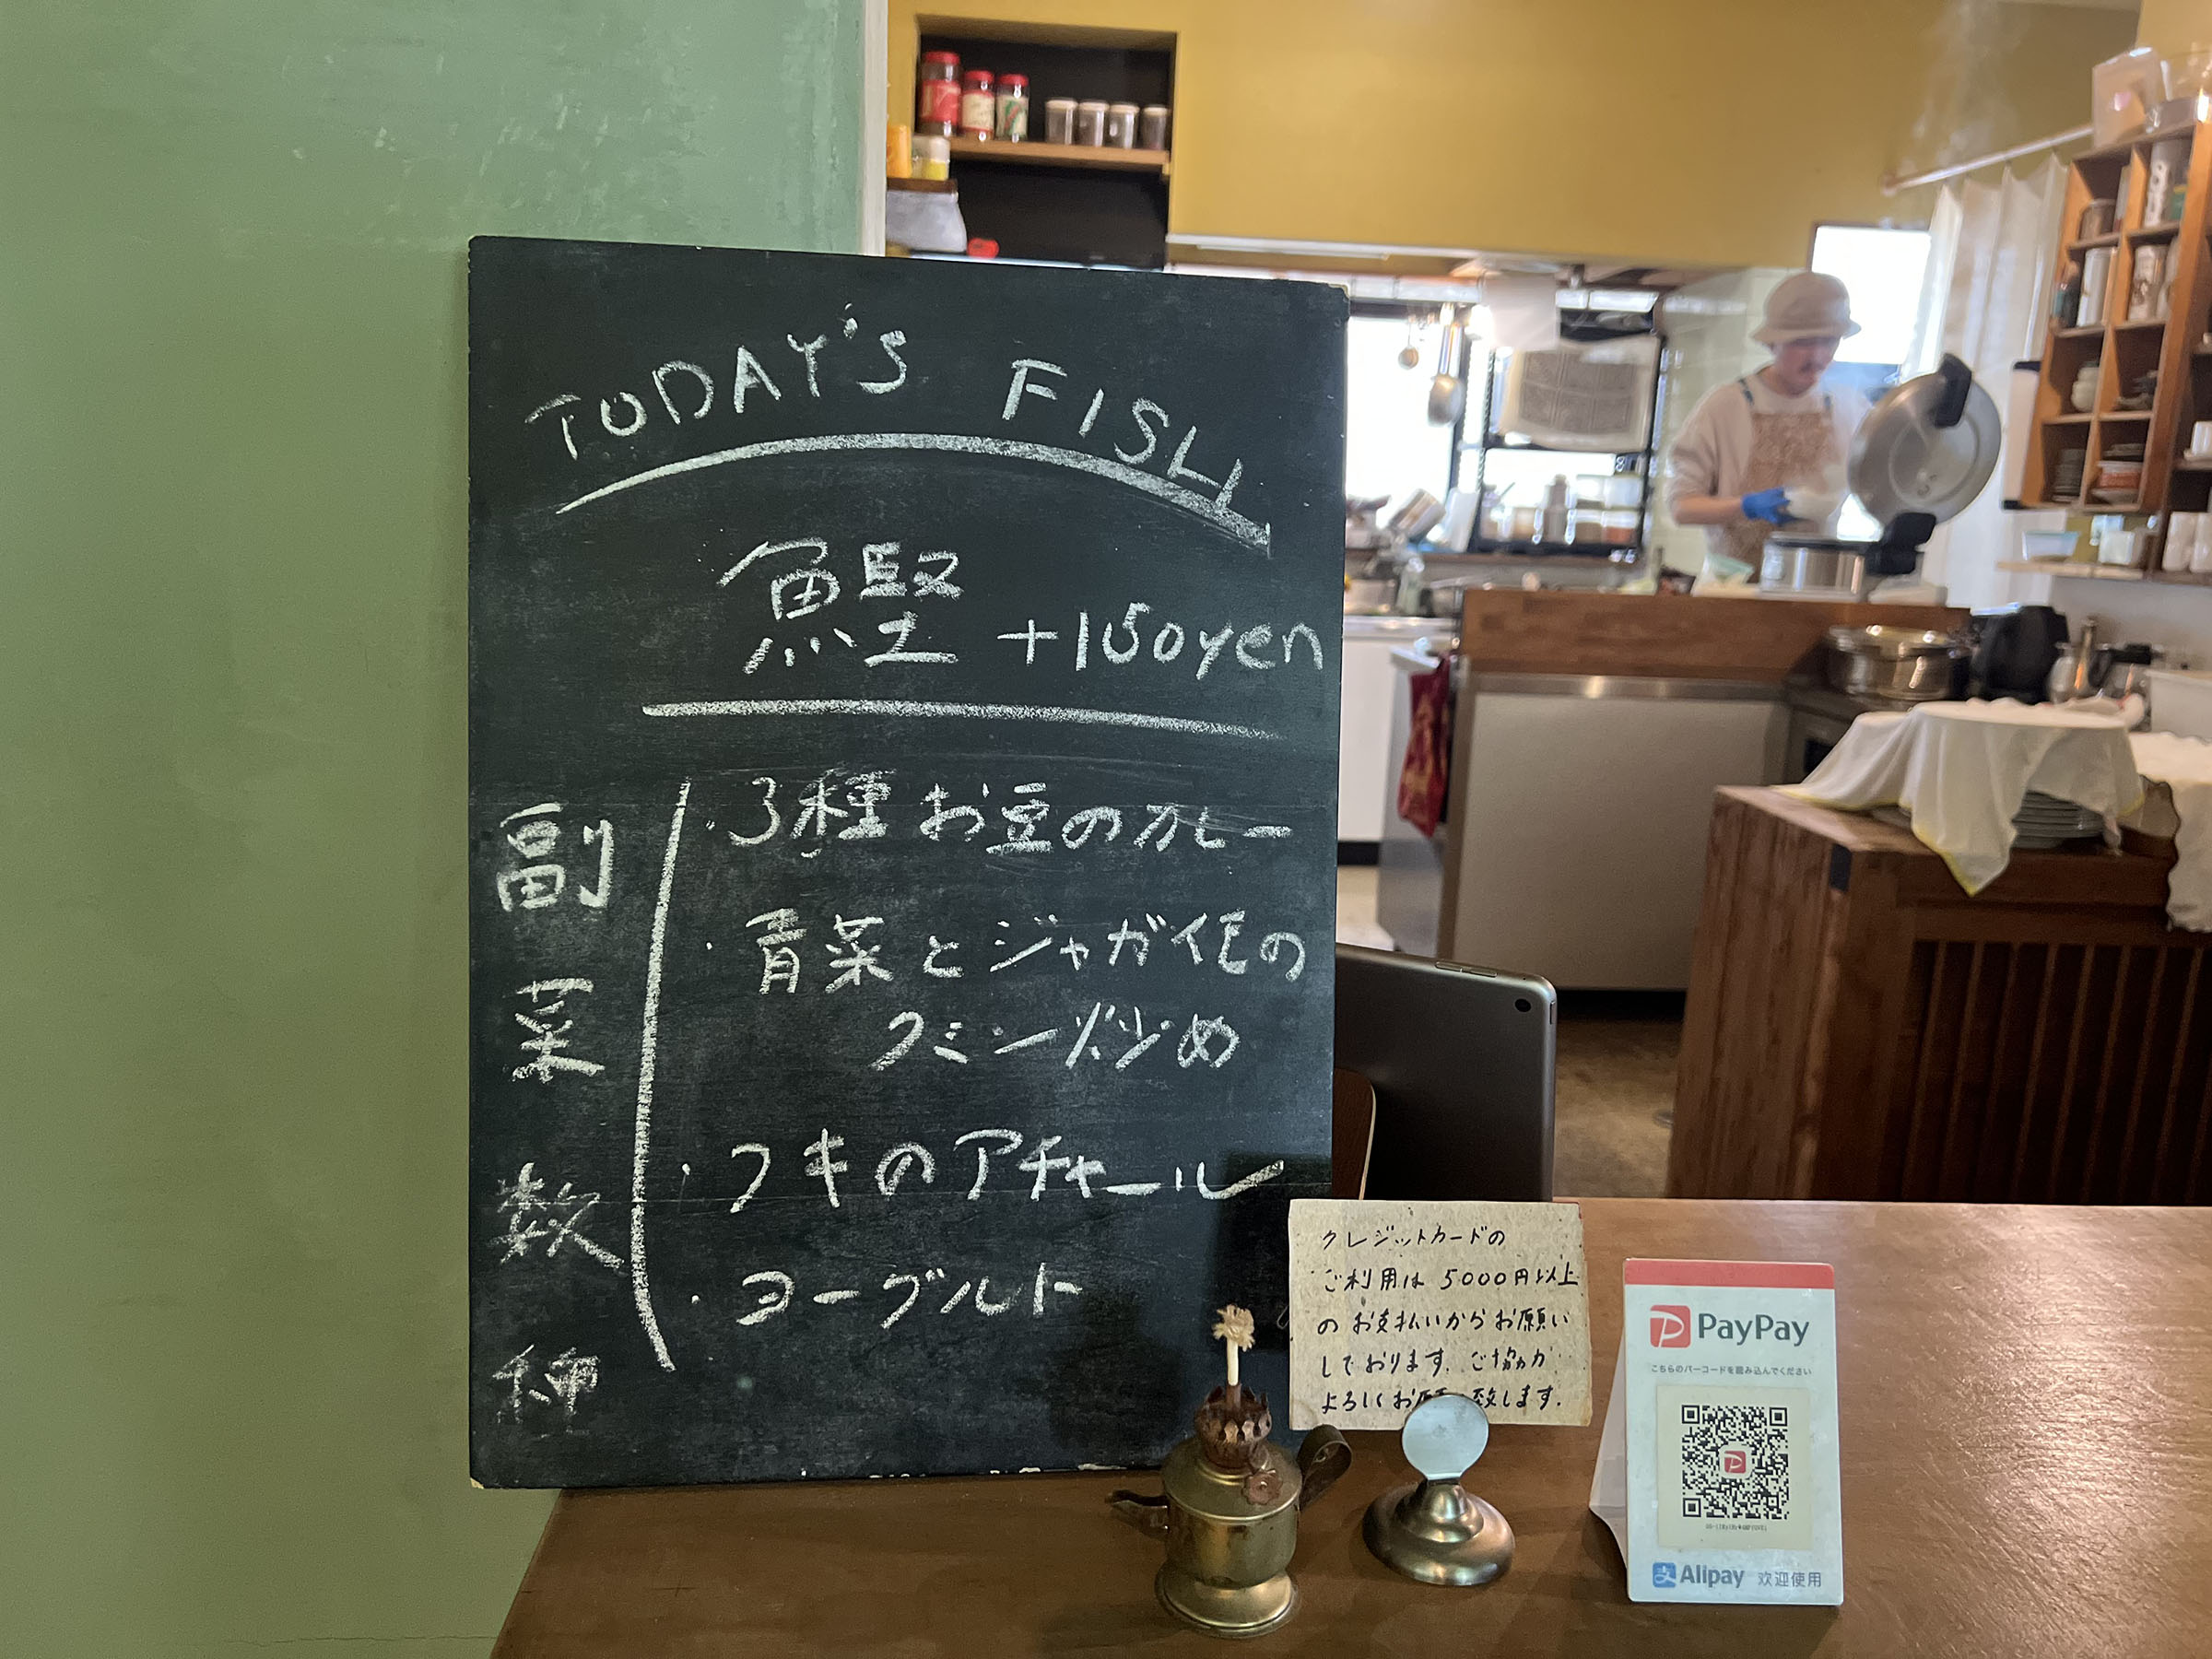 TODAY'S FISH
鰹 +150yen
副菜数種
・3種お豆のカレー
・青菜とジャガイモの
クミン炒め
・フキのアチャール
・ヨーグルト
クレジットカードの
ご利用は 5000円以上
のお支払いからお願い
しております。ご協力
よろしくお願い致します。
PayPay
こちらのバーコードを読み込んでください
Alipay 欢迎使用